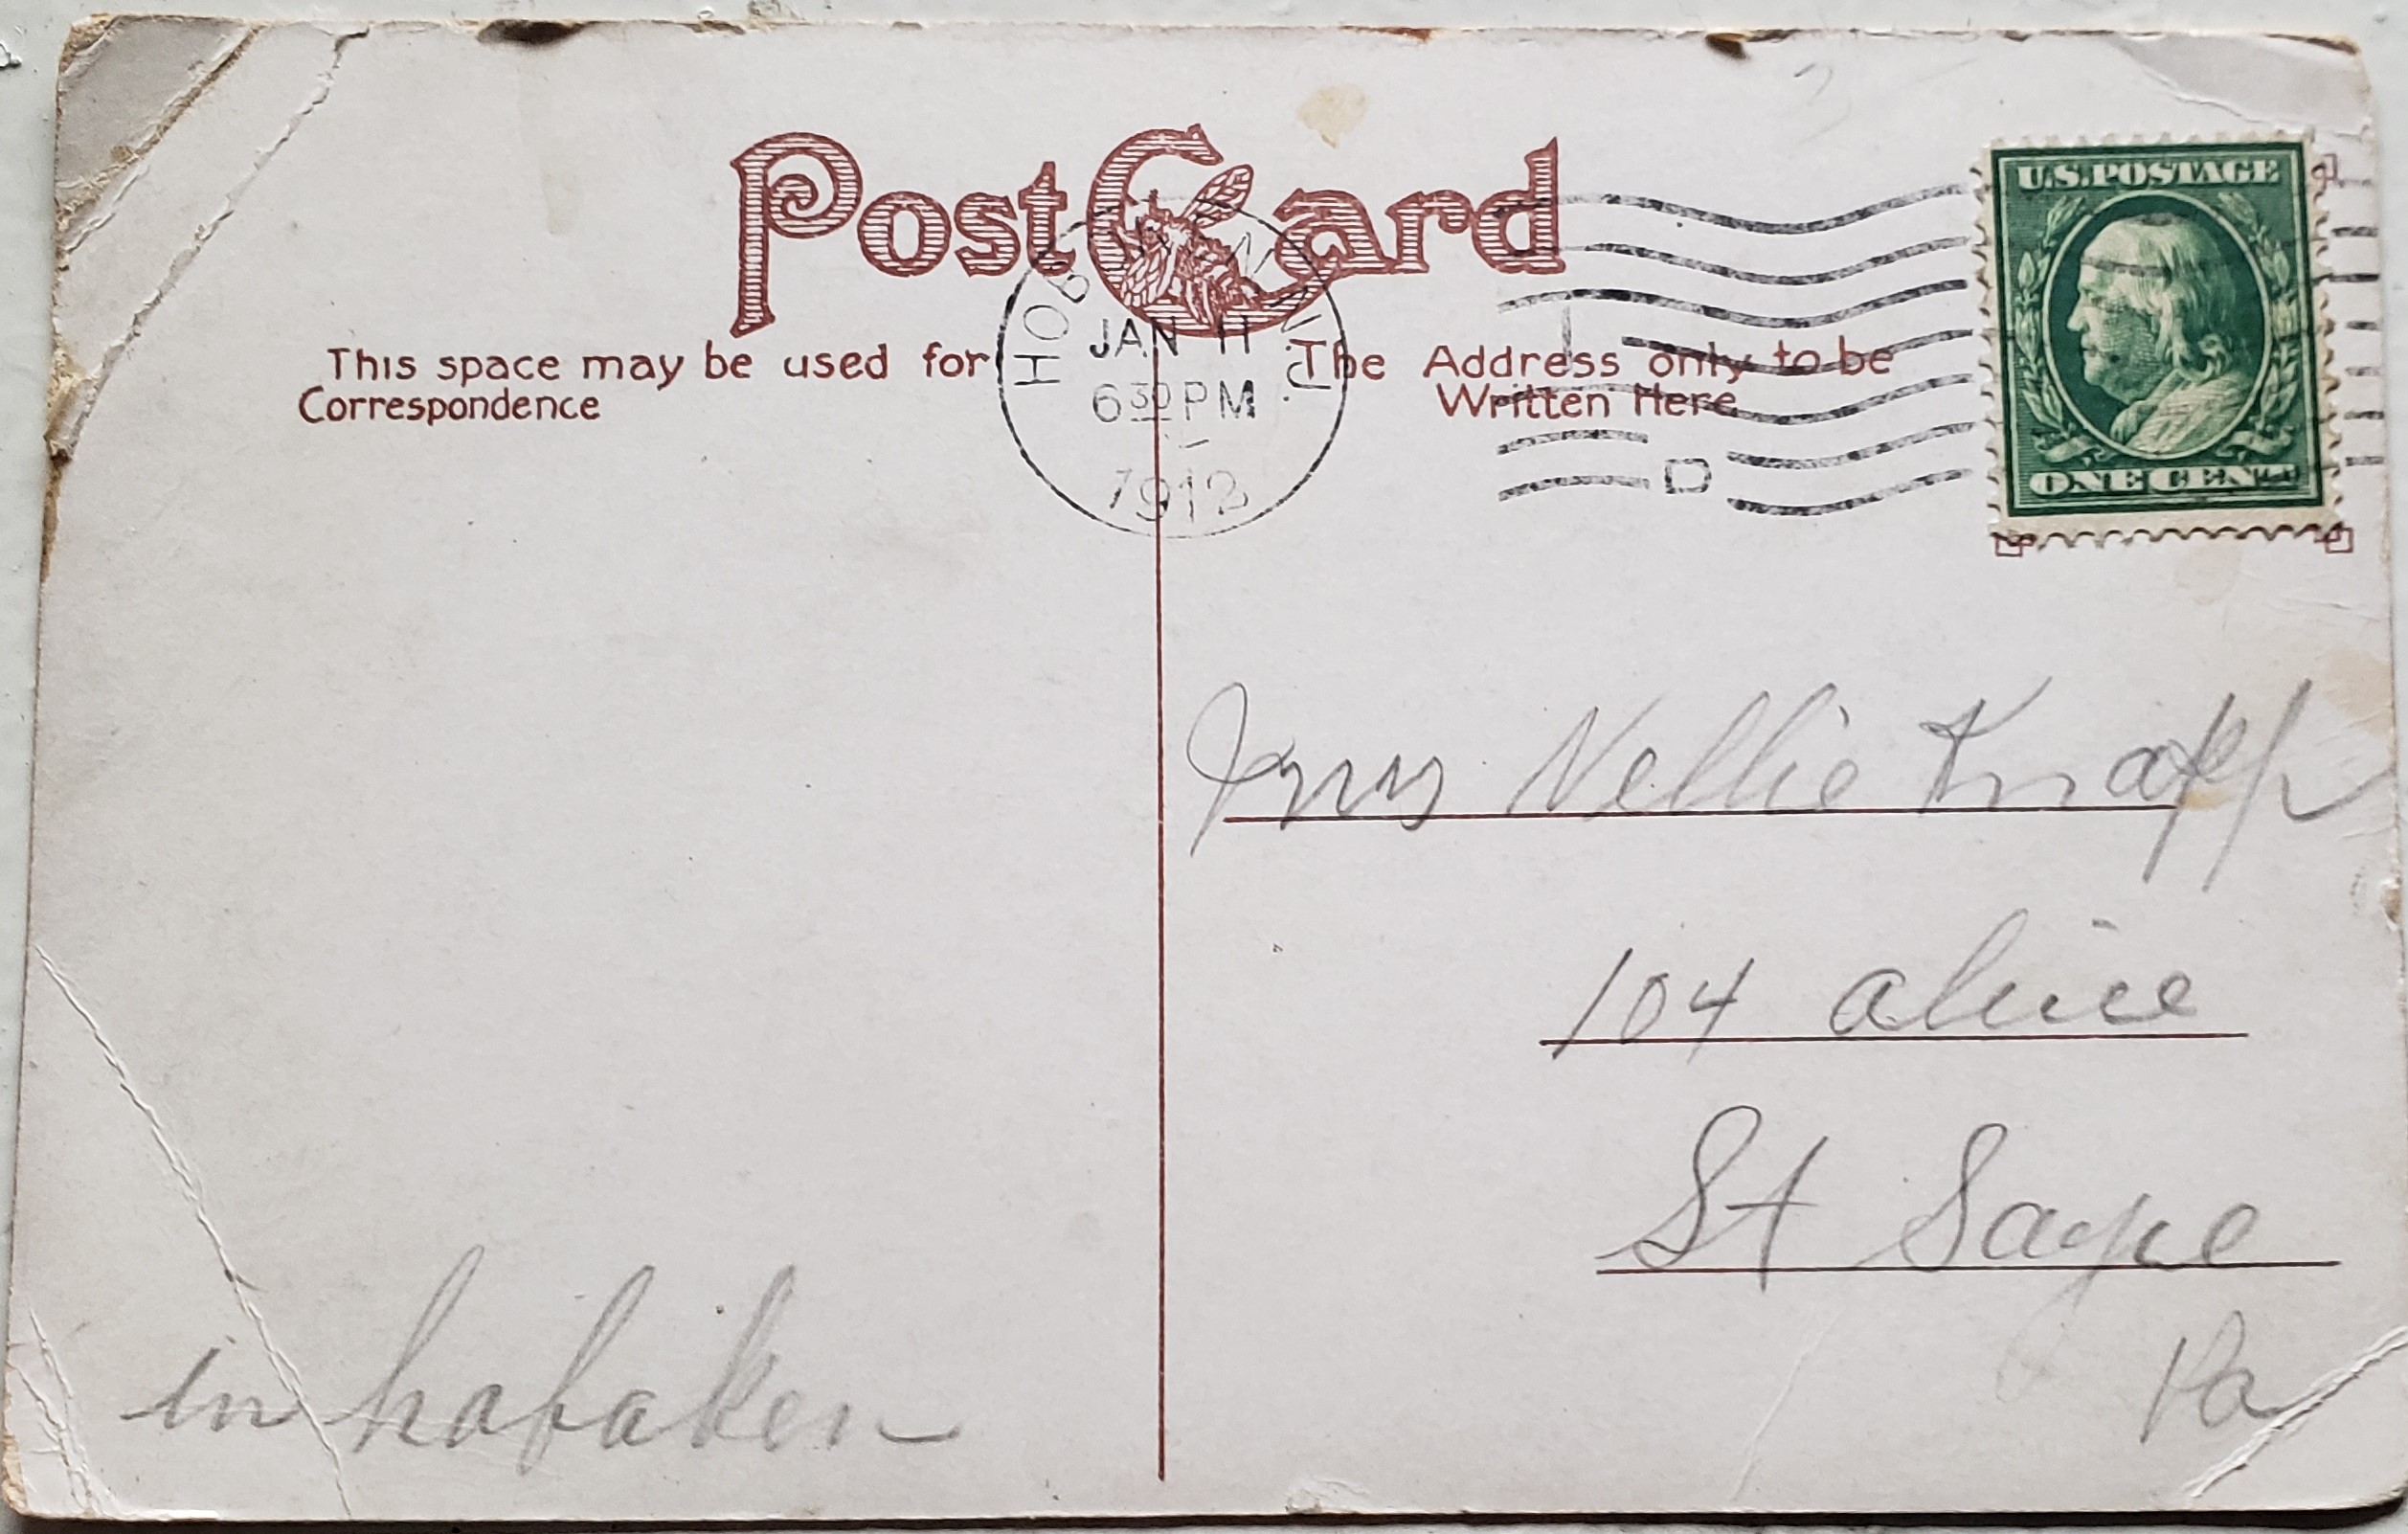 Post Card
This space may be used for
Correspondence
The Address only to be
Written Here
HOBOKEN, N.J.
JAN 11
6 30 PM
1912
D
U.S. POSTAGE
ONE CENT
Mrs Nellie Knapp
104 alice
St Sayre
Pa
in hobaken